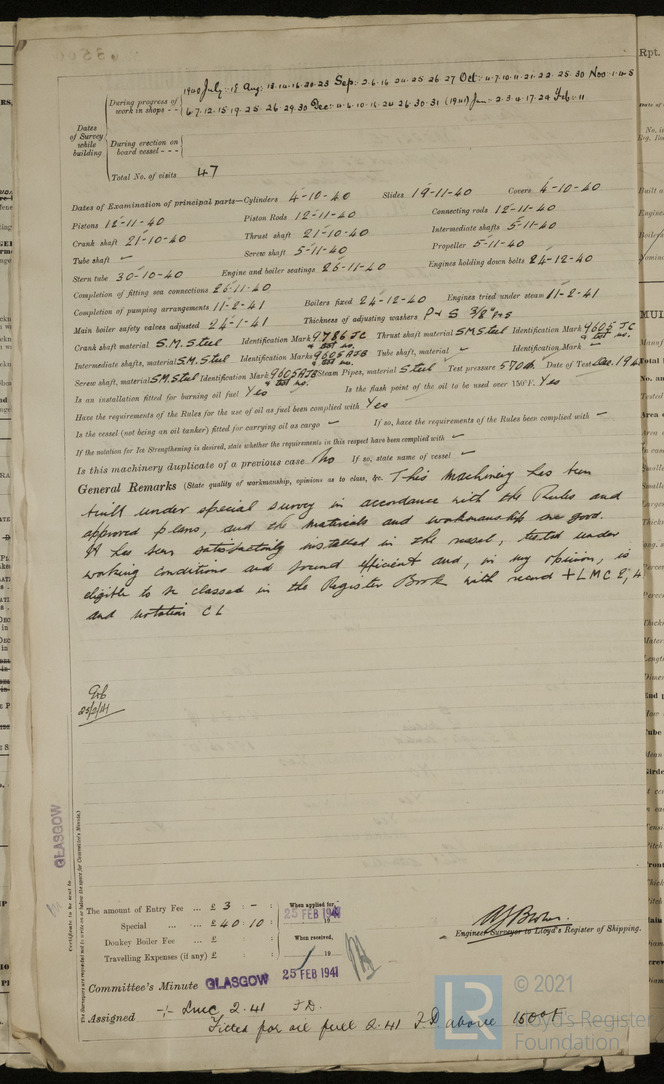 1940 July:- 18 Aug: 13·14·16·20·23 Sep: 2·6·16 20·25 26 27 Oct: 4·7·10·11·21·22·25·30 Nov·1·4·5
During progress of work in shops - -
6·7·12·15·19·25·26·29·30 Dec: 4·6·10·16·20 26·30·31 (1941) Jan: 2·3·4·17·29 Feb·11
Dates of Survey while building
During erection on board vessel - - -
Total No. of visits 47
Dates of Examination of principal parts—Cylinders 4-10-40 Slides 19-11-40 Covers 4-10-40
Pistons 12-11-40 Piston Rods 12-11-40 Connecting rods 12-11-40
Crank shaft 21-10-40 Thrust shaft 21-10-40 Intermediate shafts 5-11-40
Tube shaft - Screw shaft 5-11-40 Propeller 5-11-40
Stern tube 30-10-40 Engine and boiler seatings 26-11-40 Engines holding down bolts 24-12-40
Completion of fitting sea connections 26-11-40
Completion of pumping arrangements 11-2-41 Boilers fixed 24-12-40 Engines tried under steam 11-2-41
Main boiler safety valves adjusted 24-1-41 Thickness of adjusting washers P & S 3/8"
Crank shaft material S.M. Steel Identification Mark 9786 JC & test no. Thrust shaft material S.M. Steel Identification Mark 9605 JC & test no.
Intermediate shafts, material S.M. Steel Identification Marks 9605 AJB & test no. Tube shaft, material - Identification Mark -
Screw shaft, material S.M. Steel Identification Mark 9605 AJB & test no. Steam Pipes, material Steel Test pressure 570 Date of Test Dec. 194
Is an installation fitted for burning oil fuel Yes Is the flash point of the oil to be used over 150°F. Yes
Have the requirements of the Rules for the use of oil as fuel been complied with Yes
Is the vessel (not being an oil tanker) fitted for carrying oil as cargo - If so, have the requirements of the Rules been complied with -
If the notation for Ice Strengthening is desired, state whether the requirements in this respect have been complied with -
Is this machinery duplicate of a previous case No If so, state name of vessel -
General Remarks (State quality of workmanship, opinions as to class, &c. This Machinery has been
built under special survey in accordance with the Rules and
approved plans, and the materials and workmanship are good.
It has been satisfactorily installed in the vessel, tested under
working conditions and found efficient and, in my opinion, is
eligible to be classed in the Register Book with record + LMC 2,4
and notation CL
25/2/41
GLASGOW
Certificate to be sent to
(The Surveyors are requested not to write on or below the space for Committee's Minute.)
The amount of Entry Fee ... £ 3 : - : When applied for,
Special ... ... £ 40 : 10 : 25 FEB 1941
Donkey Boiler Fee ... £ When received,
Travelling Expenses (if any) £ 19
Engineer Surveyor to Lloyd's Register of Shipping.
Committee's Minute GLASGOW 25 FEB 1941
Assigned + LMC 2.41 F.D.
Fitted for oil fuel 2.41 F.P. above 150°F.
© 2021
Lloyd's Register
Foundation